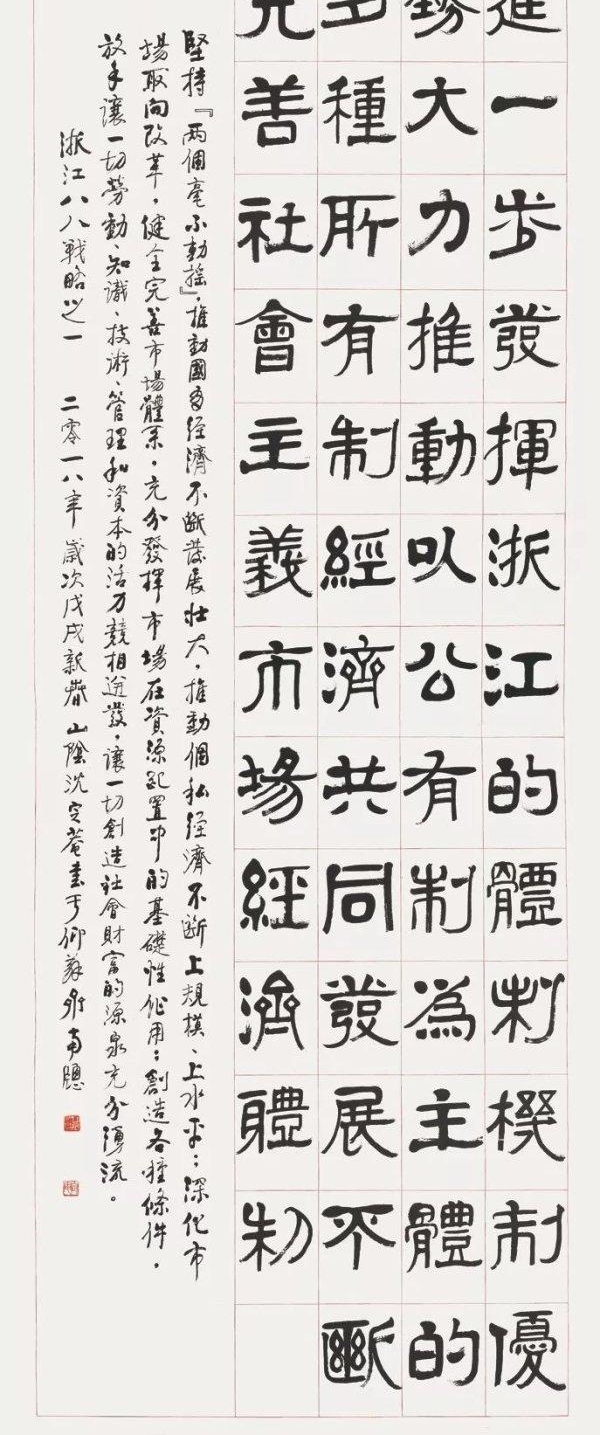 進一步發揮浙江的體制機制優
勢大力推動以公有制為主體的
多種所有制經濟共同發展不斷
完善社會主義市場經濟體制
堅持『两個毫不動搖』，推動國有經濟不斷發展壯大，推動個私經濟不斷上規模、上水平；深化市
場取向改革，健全完善市場體系，充分發揮市場在資源配置中的基礎性作用；創造各種條件，
放手讓一切勞動、知識、技術、管理和資本的活力競相迸發，讓一切創造社會財富的源泉充分湧流。
浙江八八戰略之一 二零一八年歲次戊戌新春山陰沈定菴書于仰蘇齋南窗